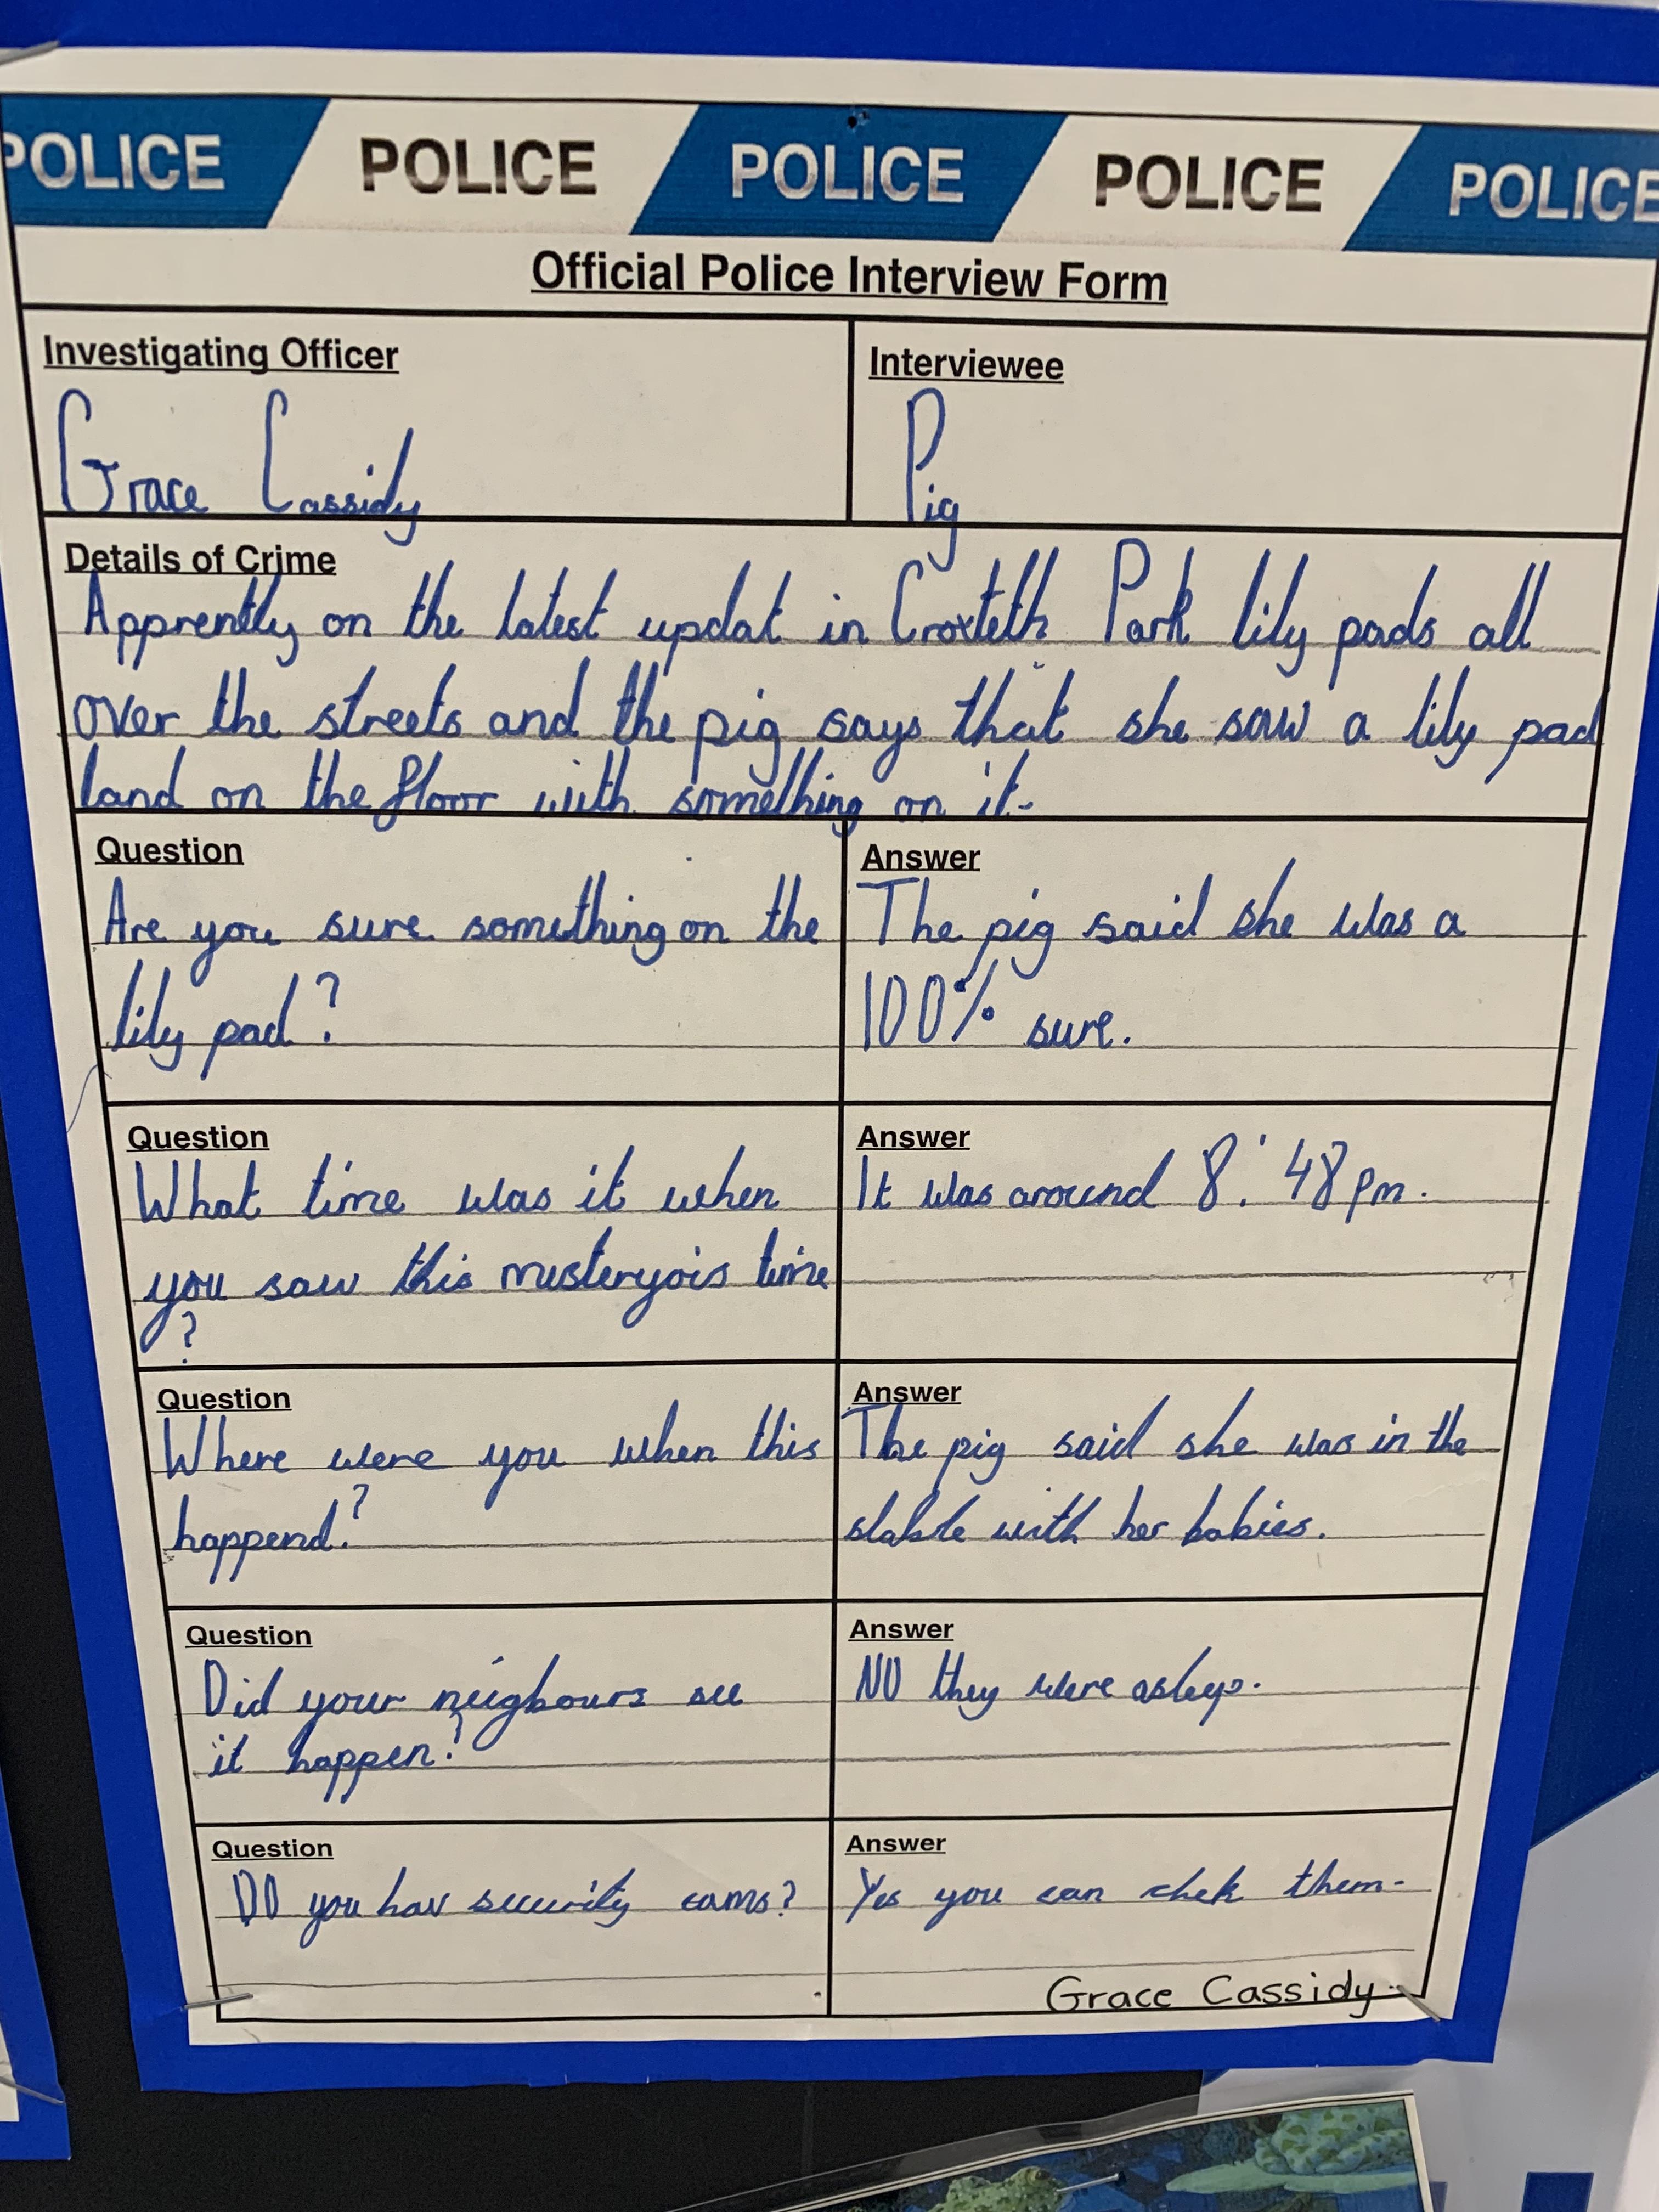 POLICE POLICE POLICE POLICE POLICE
Official Police Interview Form
Investigating Officer
Grace Cassidy
Interviewee
Pig
Details of Crime
Apprently on the latest updat in Croxteth Park lily pads all
over the streets and the pig says that she saw a lily pad
land on the floor with something on it.
Question
Are you sure something on the
lily pad?
Answer
The pig said she was a
100% sure.
Question
What time was it when
you saw this misteryois time
?
Answer
It was around 8:48pm.
Question
Where were you when this
happend?
Answer
The pig said she was in the
stable with her babies.
Question
Did your neigbours see
it happen?
Answer
NO they were asleep.
Question
DO you hav security cams?
Answer
Yes you can chek them.
Grace Cassidy